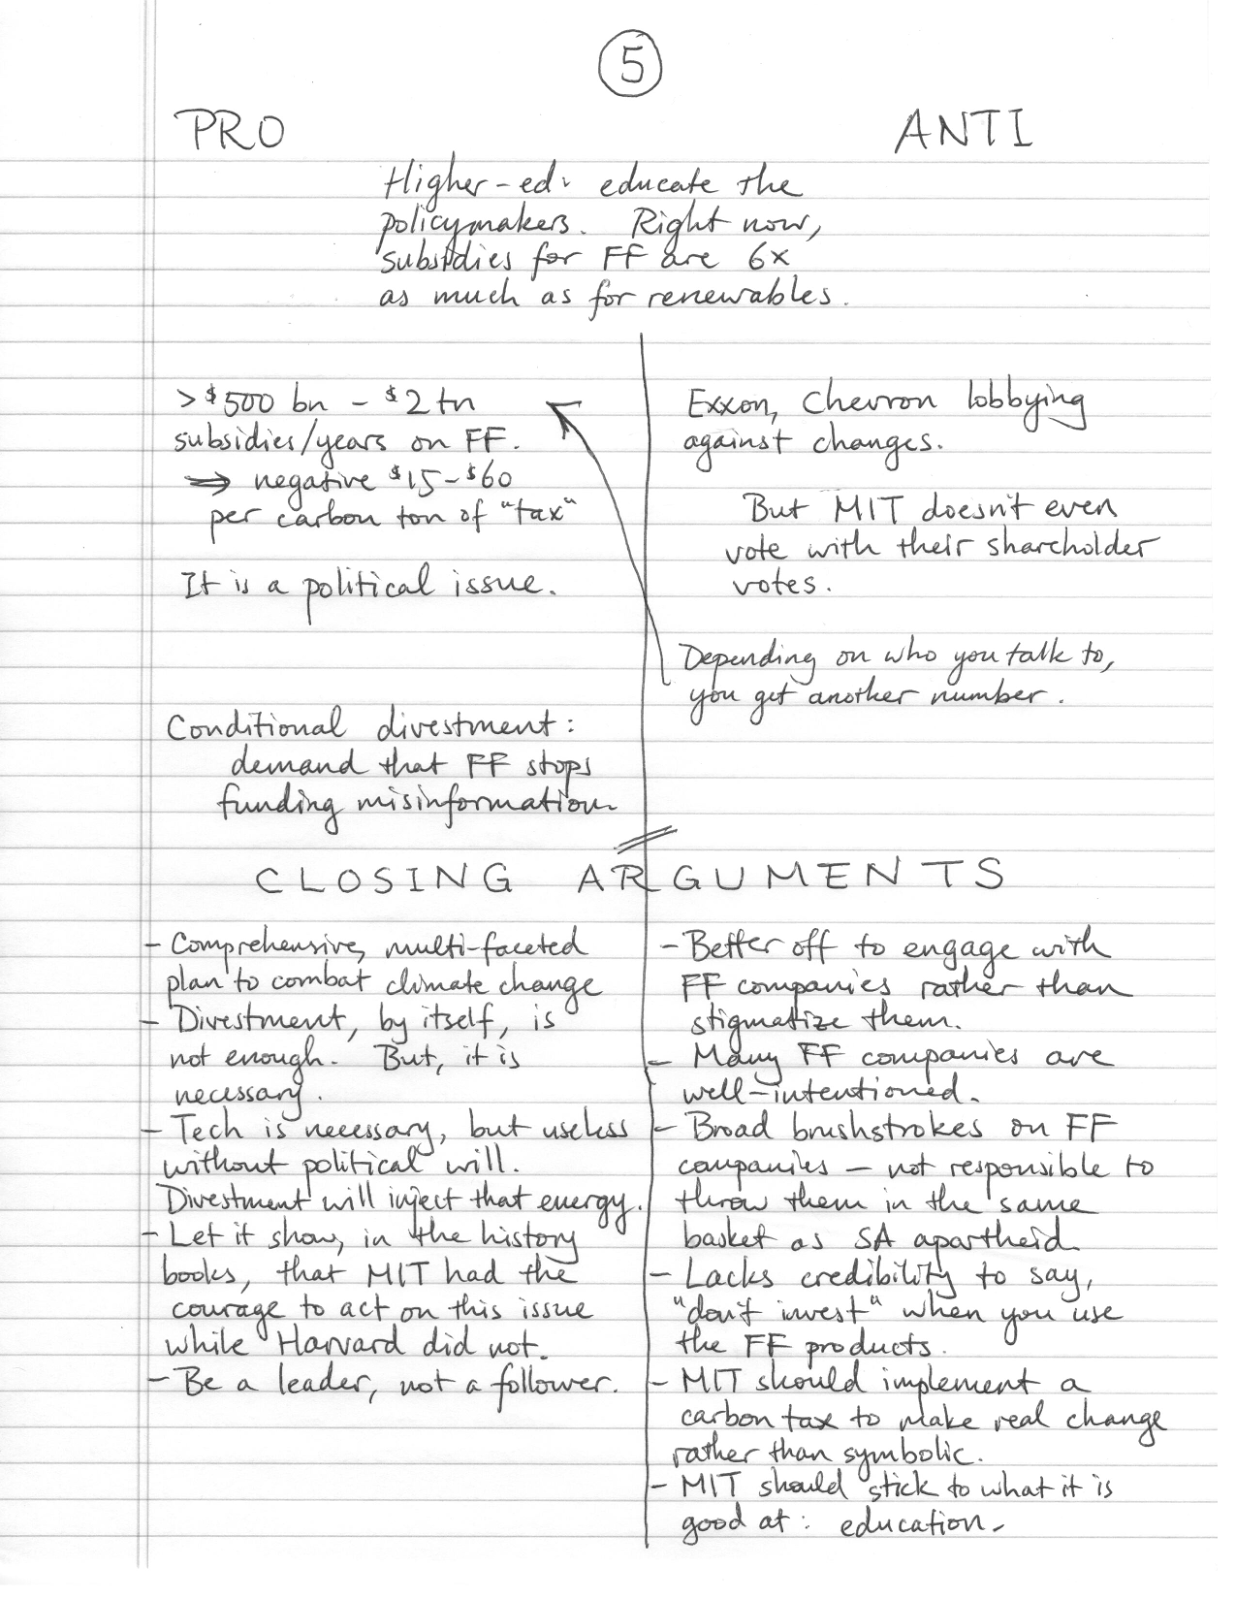 5
PRO
ANTI
Higher-ed: educate the
policymakers. Right now,
subsidies for FF are 6x
as much as for renewables.
>$500 bn - $2 tn
subsidies/years on FF.
⇒ negative $15-$60
per carbon ton of "tax"
It is a political issue.
Conditional divestment:
demand that FF stops
funding misinformation.
Exxon, Chevron lobbying
against changes.
But MIT doesn't even
vote with their shareholder
votes.
Depending on who you talk to,
you get another number.
CLOSING ARGUMENTS
- Comprehensive, multi-faceted
plan to combat climate change
- Divestment, by itself, is
not enough. But, it is
necessary.
- Tech is necessary, but useless
without political will.
Divestment will inject that energy.
- Let it show, in the history
books, that MIT had the
courage to act on this issue
while Harvard did not.
- Be a leader, not a follower.
- Better off to engage with
FF companies rather than
stigmatize them.
- Many FF companies are
well-intentioned.
- Broad brushstrokes on FF
companies - not responsible to
throw them in the same
basket as SA apartheid.
- Lacks credibility to say,
"don't invest" when you use
the FF products.
- MIT should implement a
carbon tax to make real change
rather than symbolic.
- MIT should stick to what it is
good at: education.